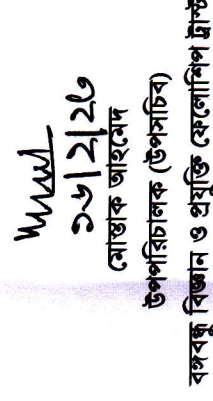 ১৬|২|২৩
মোস্তাক আহমেদ
উপপরিচালক (উপসচিব)
বঙ্গবন্ধু বিজ্ঞান ও প্রযুক্তি ফেলোশিপ ট্রাস্ট